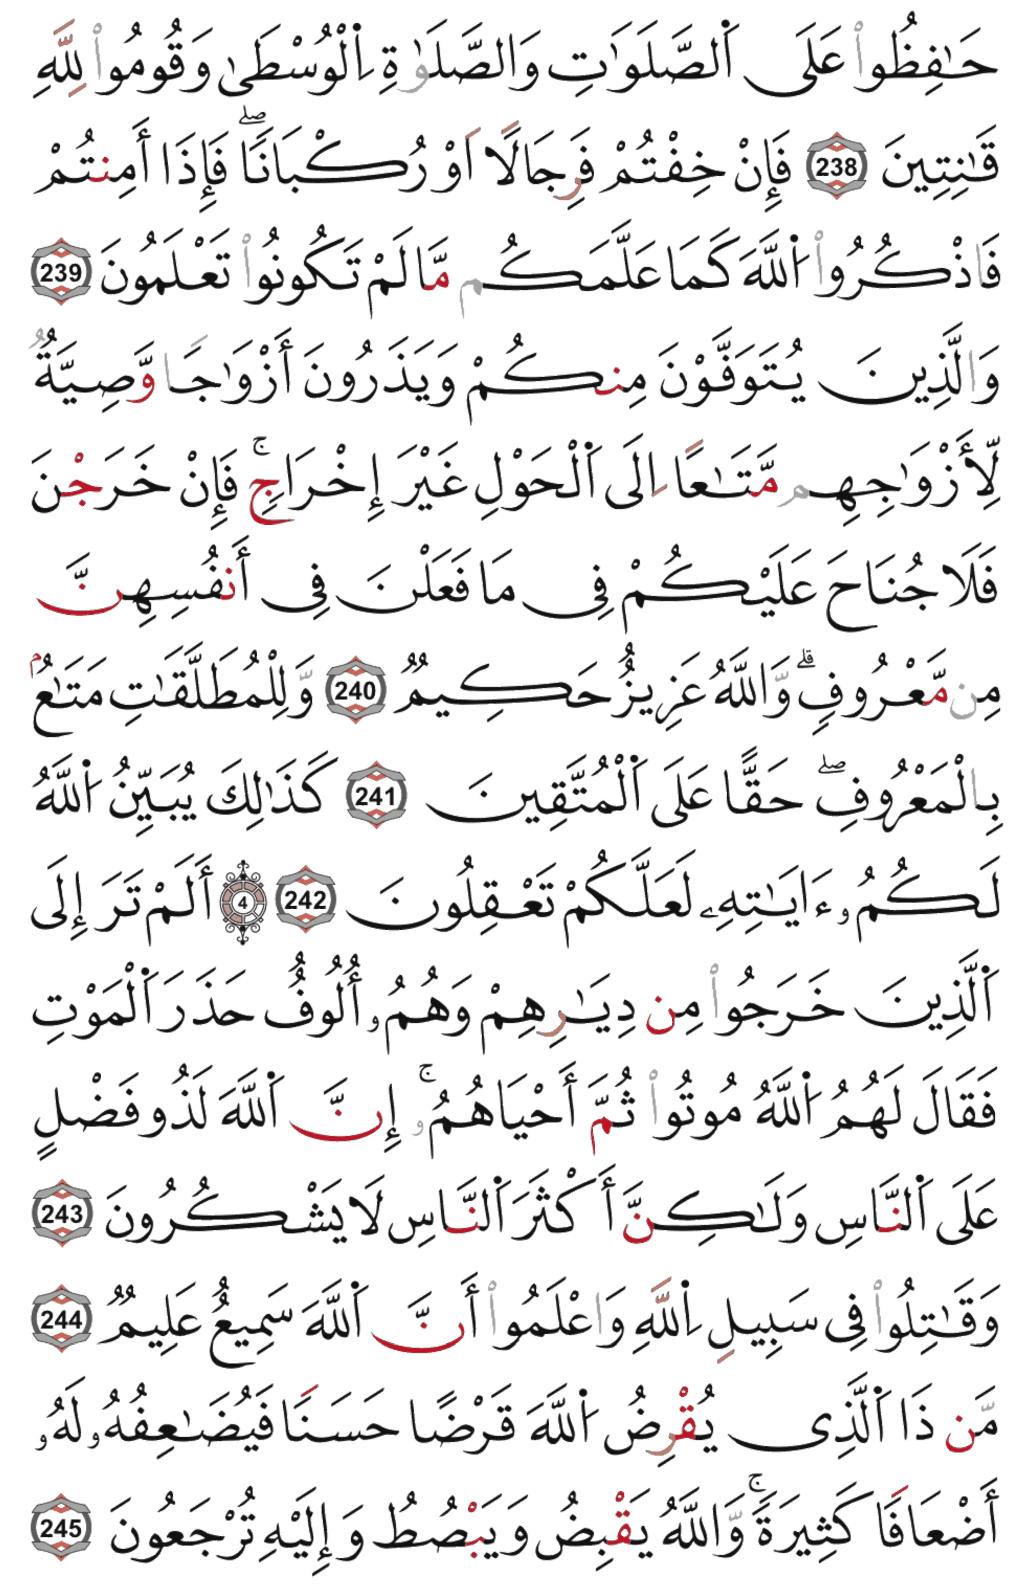 حَٰفِظُوا۟ عَلَى اَ۬لصَّلَوَٰتِ وَالصَّلَوٰةِ اِ۬لْوُسْطَىٰ وَقُومُوا۟ لِلَّهِ
قَٰنِتِينَ 238 فَإِنْ خِفْتُمْ فَرِجَالًا اَوْ رُكْبَانًاۖ فَإِذَا أَمِنتُمْ
فَاذْكُرُوا۟ اُ۬للَّهَ كَمَا عَلَّمَكُم مَّا لَمْ تَكُونُوا۟ تَعْلَمُونَ 239
وَالَّذِينَ يُتَوَفَّوْنَ مِنكُمْ وَيَذَرُونَ أَزْوَٰجًا وَّصِيَّةٌ
لِّأَزْوَٰجِهِم مَّتَٰعًا اِلَى اَ۬لْحَوْلِ غَيْرَ إِخْرَاجٍۚ فَإِنْ خَرَجْنَ
فَلَا جُنَاحَ عَلَيْكُمْ فِى مَا فَعَلْنَ فِى أَنفُسِهِنَّ
مِن مَّعْرُوفٍۗ وَّاللَّهُ عَزِيزٌ حَكِيمٌ 240 وَّلِلْمُطَلَّقَٰتِ مَتَٰعُۢ
بِالْمَعْرُوفِۖ حَقًّا عَلَى اَ۬لْمُتَّقِينَ 241 كَذَٰلِكَ يُبَيِّنُ اُ۬للَّهُ
لَكُمُۥ ءَايَٰتِهِۦ لَعَلَّكُمْ تَعْقِلُونَ 242 4 أَلَمْ تَرَ إِلَى
اَ۬لَّذِينَ خَرَجُوا۟ مِن دِيَٰرِهِمْ وَهُمُۥ أُلُوفٌ حَذَرَ اَ۬لْمَوْتِ
فَقَالَ لَهُمُ اُ۬للَّهُ مُوتُوا۟ ثُمَّ أَحْيَاهُمُۥۚ إِنَّ اَ۬للَّهَ لَذُو فَضْلٍ
عَلَى اَ۬لنَّاسِ وَلَٰكِنَّ أَكْثَرَ اَ۬لنَّاسِ لَا يَشْكُرُونَ 243
وَقَٰتِلُوا۟ فِى سَبِيلِ اِ۬للَّهِ وَاعْلَمُوا۟ أَنَّ اَ۬للَّهَ سَمِيعٌ عَلِيمٌ 244
مَّن ذَا اَ۬لَّذِى يُقْرِضُ اُ۬للَّهَ قَرْضًا حَسَنًا فَيُضَٰعِفُهُۥ لَهُۥ
أَضْعَافًا كَثِيرَةًۚ وَّاللَّهُ يَقْبِضُ وَيَبْصُطُ وَإِلَيْهِ تُرْجَعُونَ 245